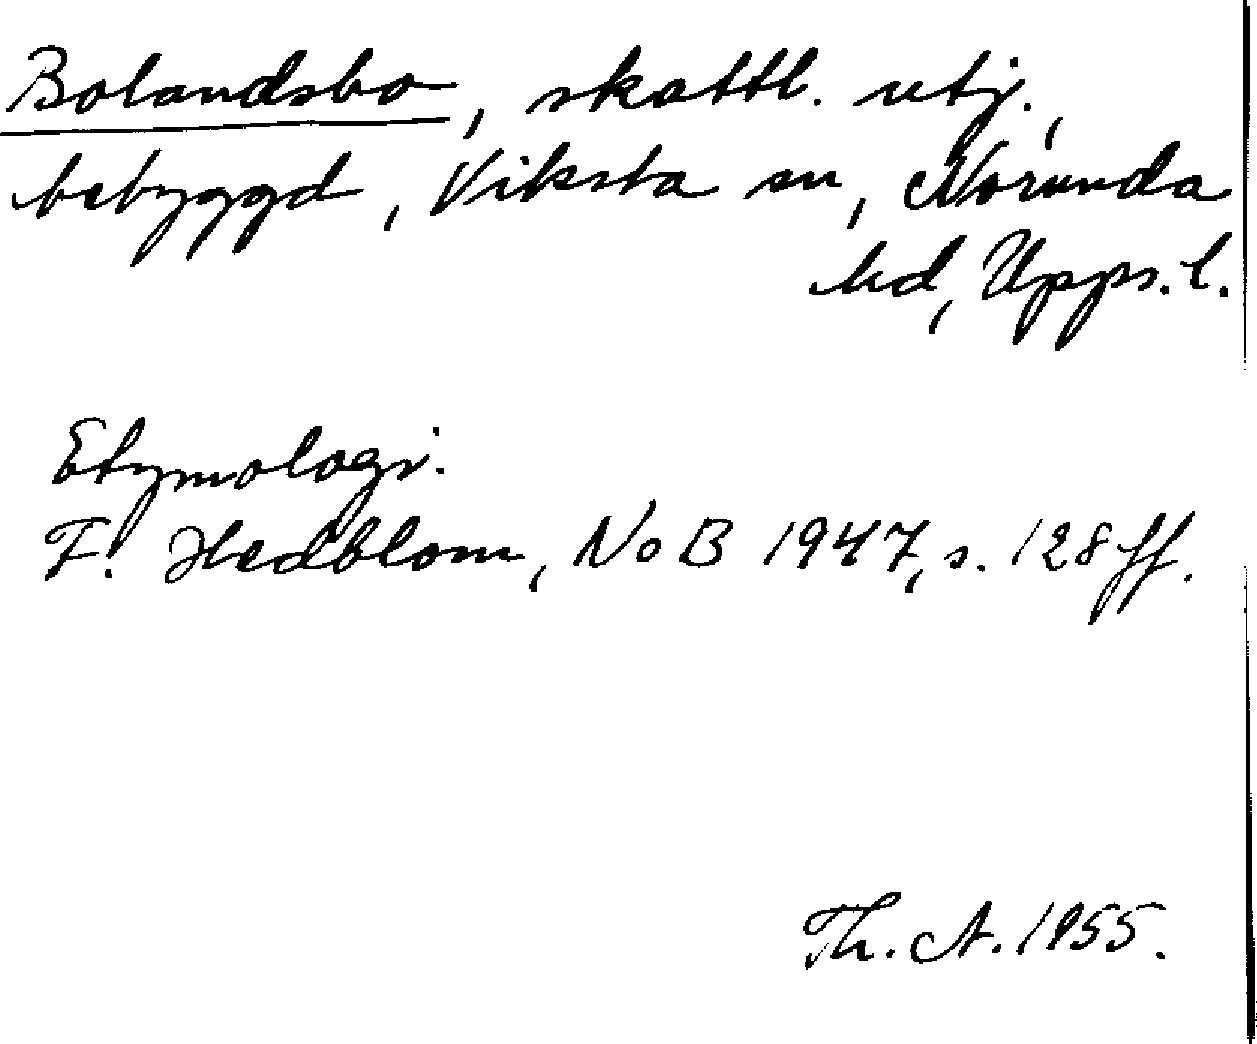 Bolandsbo, skattl. utj.,
bebyggd, Viksta sn, Norunda
hd, Upps. l.
Etymologi.
F. Hedblom, NoB 1947, s. 128 ff.
Th. A. 1955.